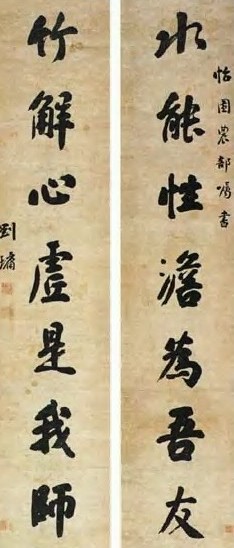 怡園農部囑書
水能性澹為吾友
竹解心虛是我師
劉墉